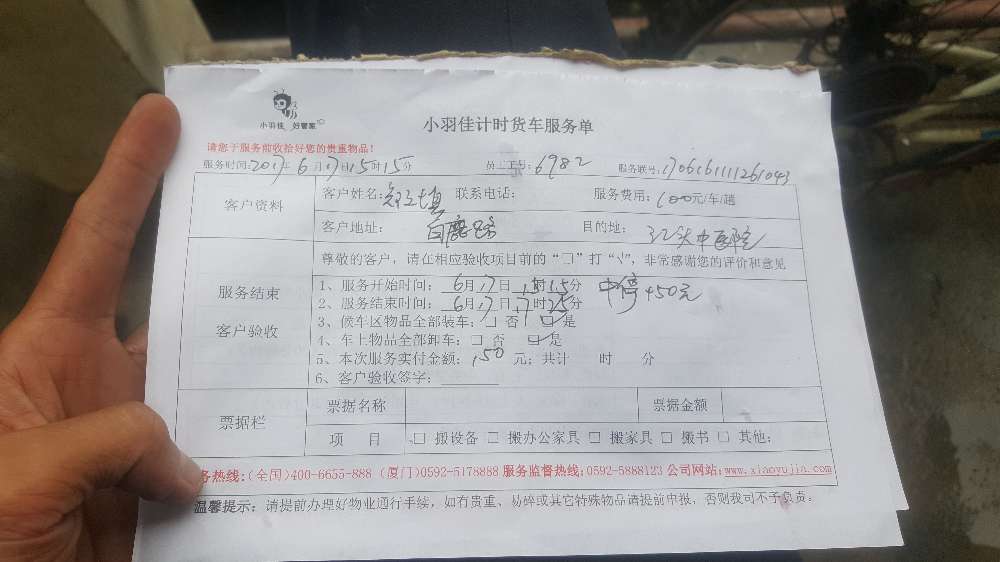 小羽佳 好管家
小羽佳计时货车服务单
请您于服务前收拾好您的贵重物品!
服务时间:2017年6月17日15时15分 员工号:6982 服务联号:1706161111261043
客户资料 客户姓名: 联系电话: 服务费用:100元/车/趟
客户地址: 白鹿 目的地: 江头中医院
尊敬的客户,请在相应验收项目前的“□”打“√”,非常感谢您的评价和意见
服务结束
客户验收
1、服务开始时间:6月17日15时15分 中停+50元
2、服务结束时间:6月17日17时25分
3、候车区物品全部装车:□ 否 ☑ 是
4、车上物品全部卸车:□ 否 ☑ 是
5、本次服务实付金额:150元;共计 时 分
6、客户验收签字:
票据栏 票据名称 票据金额
项 目 □ 搬设备 □ 搬办公家具 □ 搬家具 □ 搬书 □ 其他:
务热线:(全国)400-6655-888 (厦门)0592-5178888 服务监督热线:0592-5888123 公司网站:www.xiaoyujia.com
温馨提示:请提前办理好物业通行手续,如有贵重、易碎或其它特殊物品请提前申报,否则我司不予负责。